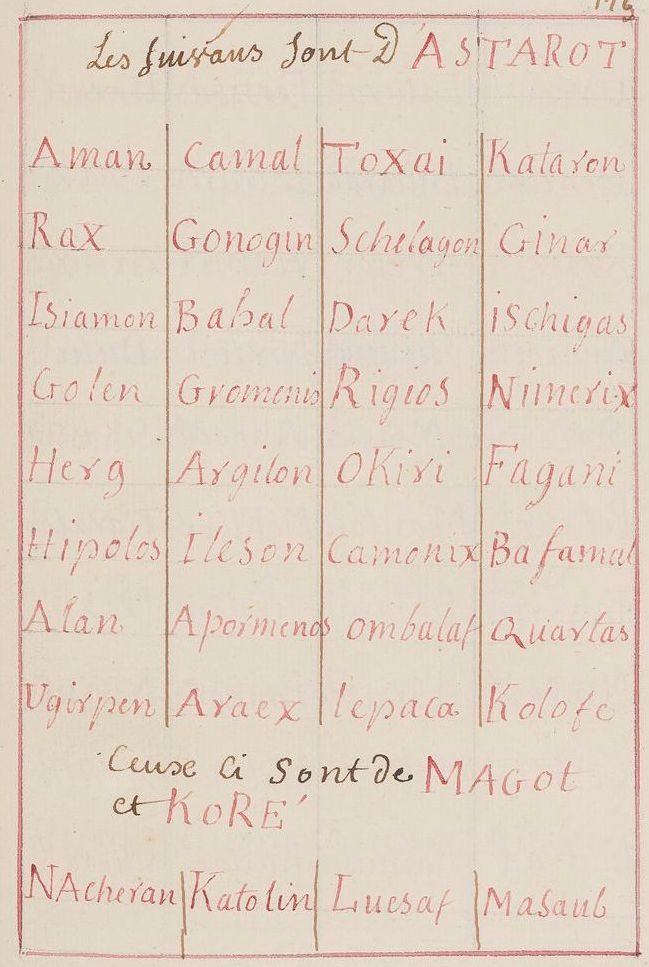 Les suivans sont D'ASTAROT
Aman Camal Toxai Kataron
Rax Gonogin Schelagon Ginar
Isiamon Bahal Darek ischigas
Golen Gromenis Rigios Nimerix
Herg Argilon OKiri Fagani
Hipolos Ileson Camonix Bafamal
Alan Apormenos ombalaf Quartas
Ugirpen Araex lepaca Kolofe
Ceuxe Ci Sont de MAGOt
et KoRE'
NAcheran Katolin Luesaf Masaub